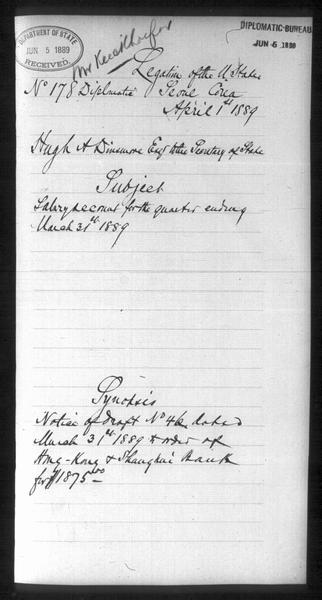 DEPARTMENT OF STATE
JUN 5 1889
RECEIVED.
DIPLOMATIC BUREAU
JUN 5 1889
Mr
Legation of the U States
No 178 Diplomatic Seoul Corea
April 1st 1889
Hugh A Dinsmore Esq to the Secretary of State
Subject
Salary account for the quarter ending
March 31st 1889
Synopsis
Notice of draft No 46 dated
March 31st 1889 to order of
Hong-Kong & Shanghai Bank
for $1875.00